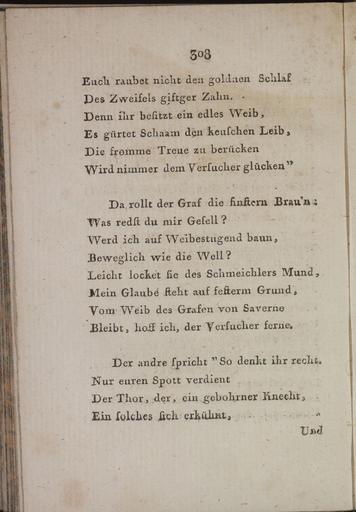 308
Euch raubet nicht den goldnen Schlaf
Des Zweifels giftger Zahn.
Denn ihr besitzt ein edles Weib,
Es gürtet Schaam den keuschen Leib,
Die fromme Treue zu berücken
Wird nimmer dem Versucher glücken"
Da rollt der Graf die finstern Brau'n:
Was redst du mir Gesell?
Werd ich auf Weibestugend baun,
Beweglich wie die Well?
Leicht locket sie des Schmeichlers Mund,
Mein Glaube steht auf festerm Grund,
Vom Weib des Grafen von Saverne
Bleibt, hoff ich, der Versucher ferne.
Der andre spricht "So denkt ihr recht.
Nur euren Spott verdient
Der Thor, der, ein gebohrner Knecht,
Ein solches sich erkühnt,
Und